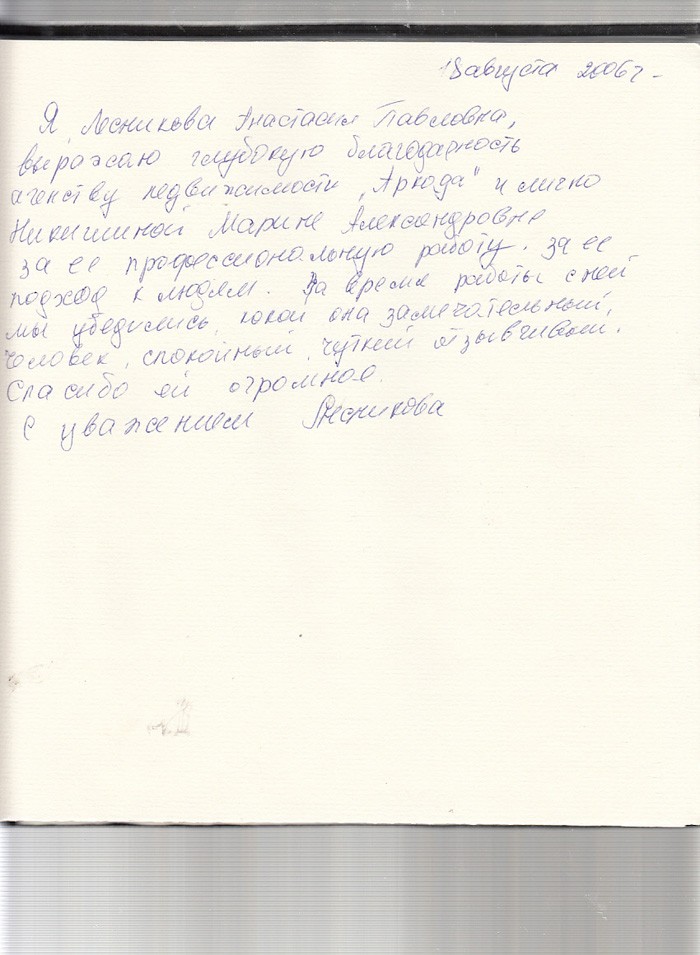 18 августа 2006 г.
Я, Лесникова Анастасия Павловна,
выражаю глубокую благодарность
агенству недвижимости „Аркада" и лично
Никишиной Марине Александровне
за ее профессиональную работу, за ее
подход к людям. За время работы с ней
мы убедились, какой она замечательный,
человек, спокойный, чуткий отзывчивый.
Спасибо ей огромное.
С уважением Лесникова